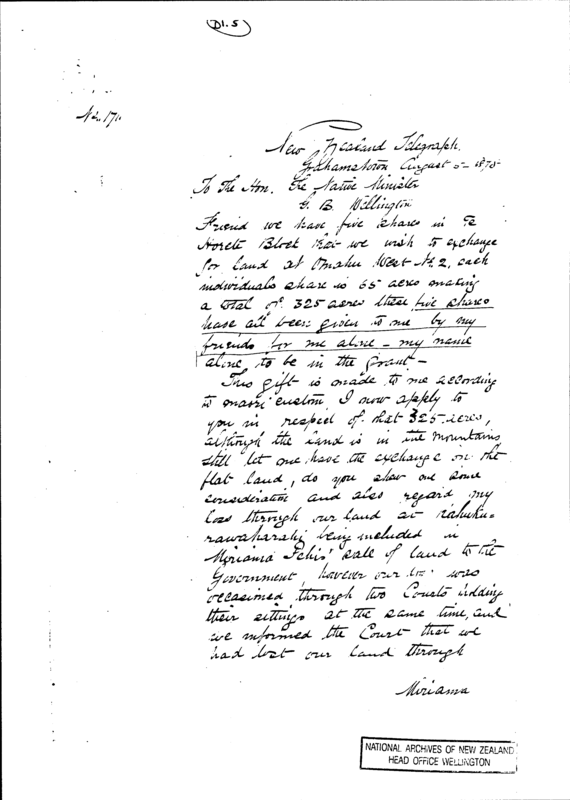 D1.5
No. 170
New Zealand Telegraph.
Grahamstown August 5- 1875
To The Hon. The Native Minister
G. B. Wellington
Friend we have five shares in Te
Horete Block that we wish to exchange
for land at Omahu West No. 2, each
individuals share is 65 acres making
a total of 325 acres these five shares
have all been given to me by my
friends for me alone - my name
alone to be in the grant -
This gift is made to me according
to maori custom I now apply to
you in respect of that 325 acres,
although the land is in the mountains
still let me have the exchange on the
flat land, do you show me some
consideration and also regard my
loss through our land at
being included in
Miriama sale of land to the
Government, however our loss was
occasioned through two Courts holding
their sittings at the same time, and
we informed the Court that we
had lost our land through
Miriama
NATIONAL ARCHIVES OF NEW ZEALAND
HEAD OFFICE WELLINGTON